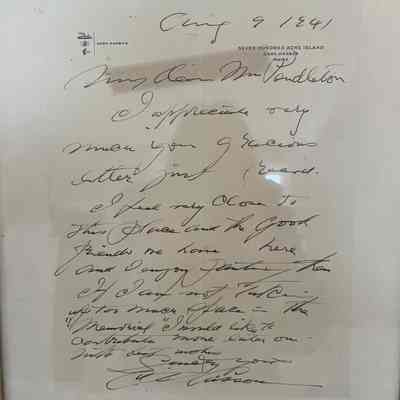 Aug 9 1941
DARK HARBOR
SEVEN HUNDRED ACRE ISLAND
DARK HARBOR
MAINE
My dear Mr Pendleton
I appreciate very
much your gracious
letter just
I feel very close to
this place and the good
friends we have here
and I enjoy them
If I am not
up too much space in the
"Memorial" I would like to
contribute more later on -
wishes
yours
Gibson